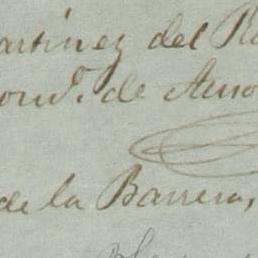 artinez del R
ond.º de Arro
de la Barrera,